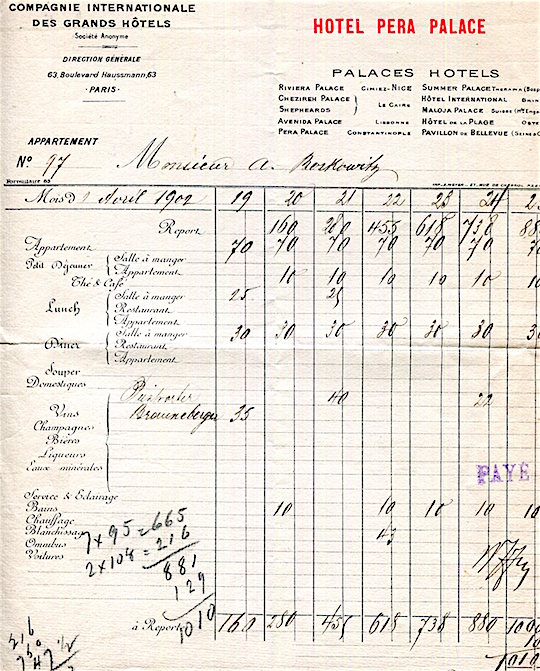 COMPAGNIE INTERNATIONALE
DES GRANDS HÔTELS
Société Anonyme
DIRECTION GÉNÉRALE
63, Boulevard Haussmann, 63
PARIS
HOTEL PERA PALACE
PALACES HOTELS
RIVIERA PALACE CIMIEZ-NICE SUMMER PALACE THERAPIA (Bosp
GHEZIREH PALACE HÔTEL INTERNATIONAL BRIN
SHEPHEARDS LE CAIRE MALOJA PALACE SUISSE (Hte Enga
AVENIDA PALACE LISBONNE HÔTEL DE LA PLAGE OSTE
PERA PALACE CONSTANTINOPLE PAVILLON DE BELLEVUE (SEINE &
APPARTEMENT
No 97 Monsieur A. Berkowitz
Formulaire 63
Mois D' Avril 1902 19 20 21 22 23 24 25
Report 160 280 455 618 738 88
Appartement 70 70 70 70 70 70 70
Petit Déjeuner Salle à manger
Appartement 10 10 10 10 10 10
Thé & Café
Lunch Salle à manger 25 25
Restaurant
Appartement
Dîner Salle à manger 30 30 30 30 30 30 30
Restaurant
Appartement
Souper
Domestiques
Vins 40 22
Brauneberger 35
Champagnes
Bières
Liqueurs
Eaux minérales
PAYÉ
Service & Eclairage
Bains 10 10 10 10 10
Chauffage
Blanchissage 43
Omnibus
Voitures
7 x 95 = 665
2 x 108 = 216
881
129
1010
à Reporter 160 280 455 618 738 880 1000
10
1010
216